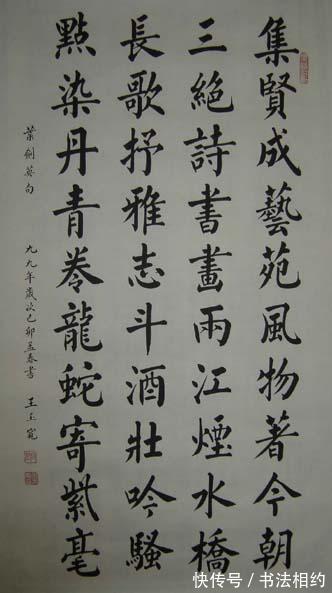 集賢成藝苑風物著今朝
三絕詩書畫兩江煙水橋
長歌抒雅志斗酒壯吟騷
點染丹青卷龍蛇寄紫毫
葉劍英句 九九年歲次己卯孟春書 王玉寬
快传号/书法相约